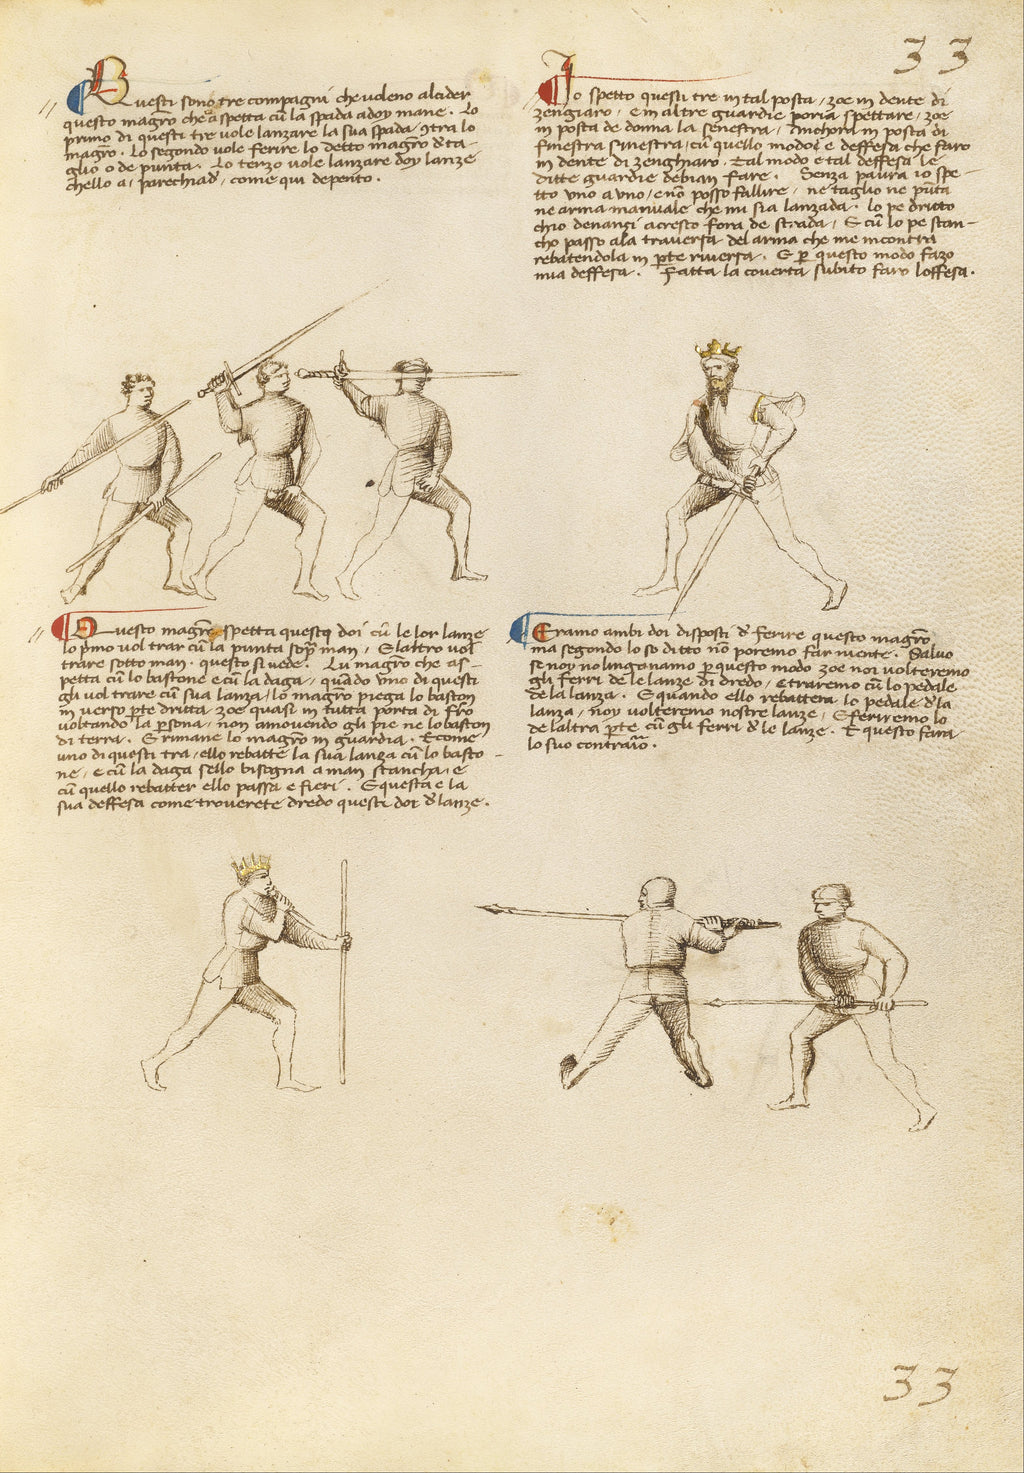 33
Questi sono tre compagni che voleno alcider
questo magro che aspetta cū la spada adoy mane. Lo
primo di questi tre vole lanzare la sua spada ꝯtra lo
magrō. Lo segondo vole ferire lo detto magrō d'ta-
glio o de punta. Lo terzo vole lanzare doy lanze
chello a, parechiad', come qui depento.
Io spetto questi tre in tal posta, zoe in dente di
zengiaro, e in altre guardie poria spettare, zoe
in posta de donna la senestra, Anchora in posta di
finestra sinestra, cū quello modo e deffesa che faro
in dente di zenghiaro. Tal modo e tal deffesa le
ditte guardie debian fare. Senza paura io spe-
tto uno a uno, e nō posso fallire, ne taglio ne pūta
ne arma manuale che mi sia lanzada. lo pe dritto
chio denanzi acresto fora de strada, E cū lo pe stan-
cho passo ala traversa del arma che me incontra
rebatendola in ꝑte riversa. E ꝑ questo modo fazo
mia deffesa. Fatta la coverta subito faro loffesa.
Questo magrō spetta questi doi cū le lor lanze
lo pimo vol trar cū la punta sop̄ man, E laltro vol
trare sotto man. questo si vede. Lu magrō che as-
petta cū lo bastone e cū la daga, quādo vno di questi
gli vol trare cū sua lanza, lo magrō piega lo baston
in verso ꝑte dritta, zoe quasi in tutta porta di fro
voltando la ꝑsona, non amovendo gli pie ne lo baston
di terra. E rimane lo magrō in guardia. E come
uno di questi tra, ello rebatte la sua lanza cū lo basto-
ne, e cū la daga sello bisogna a man stancha, e
cū quello rebatter ello passa e fieri. E questa e la
sua deffesa come troverete dredo questi doi d' lanze.
Eramo ambi doi disposti d' ferire questo magrō
ma segondo lo so ditto nō poremo far niente. Salvo
se noy no linganamo ꝑ questo modo zoe noi volteremo
gli ferri de le lanze di dredo, e traremo cū lo pedale
de la lanza. E quando ello rebattera lo pedale d' la
lanza, noy volteremo nostre lanze, E feriremo lo
de laltra ꝑte cū gli ferri d' le lanze. E questo sara
lo suo contrario.
33